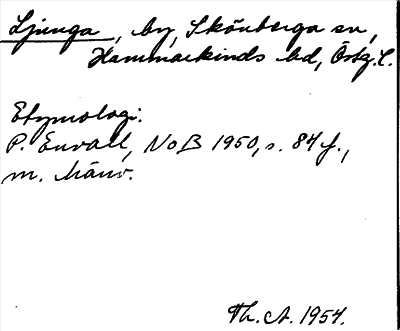 Ljunga, by, Skönberga sn,
Hammarkinds hd, Östg. l.
Etymologi:
P. Envall, NoB 1950, s. 84 f.,
m. hänv.
Th. A. 1954.